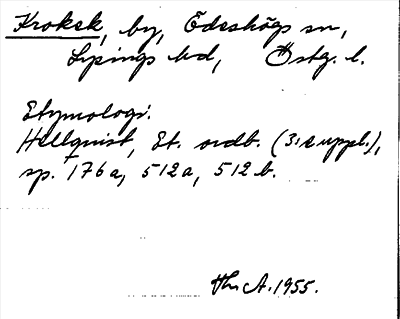 Krokek, by, Ödeshögs sn,
Lysings hd, Östg. l.
Etymologi.
Hellquist, Et. ordb. (3:e uppl.),
sp. 176a, 512a, 512b.
A. 1955.